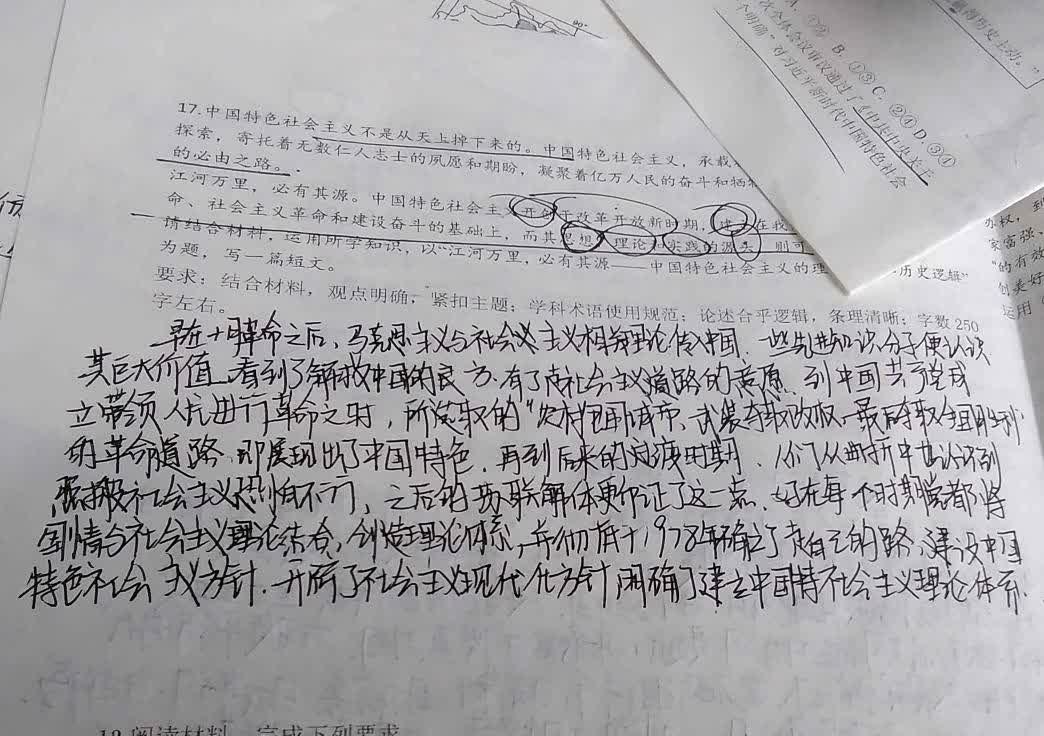 A. ①② B. ①③ C. ②④ D. ③④
次全体会议审议通过了《中共中央关于
个明确"对习近平新时代中国特色社会
握历史主动。"
17.中国特色社会主义不是从天上掉下来的。中国特色社会主义，承载
探索，寄托着无数仁人志士的夙愿和期盼，凝聚着亿万人民的奋斗和牺牲
的必由之路。
江河万里，必有其源。中国特色社会主义开创于改革开放新时期，建立在我
命、社会主义革命和建设奋斗的基础上，而其思想、理论和实践的源头，则可
请结合材料，运用所学知识，以"江河万里，必有其源——中国特色社会主义的理
历史逻辑"
为题，写一篇短文。
要求：结合材料，观点明确，紧扣主题；学科术语使用规范；论述合乎逻辑，条理清晰；字数250
字左右。
早在十月革命之后，马克思主义与社会主义相关理论传入中国，一些先进知识分子便认识
其巨大价值，看到了解救中国的良方，有了走社会主义道路的意愿，到中国共产党成
立带领人民进行革命之时，所选取的"农村包围城市，武装夺取政权，最后夺取全国胜利"
的革命道路，即展现出了中国特色，再到后来的过渡时期，人们从曲折中也认识到
照搬社会主义恐怕不行，之后的苏联解体更印证了这一点，好在每个时期党都将
国情与社会主义理论结合，创造理论体系，并彻底于1978年确立了走自己的路，建设中国
特色社会主义方针，开辟了社会主义现代化方针，明确了建立中国特社会主义理论体系
权，到
家富强、
的有效
创美好
运用
18.阅读材料，完成下列要求